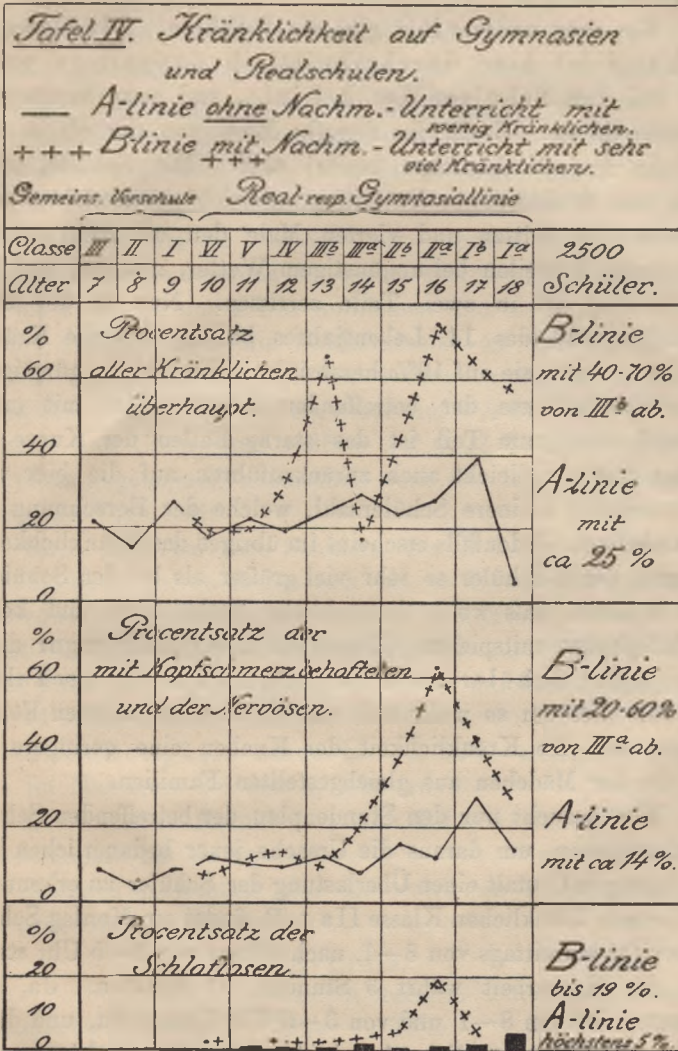 Tafel IV. Kränklichkeit auf Gymnasien
und Realschulen.
— A-linie ohne Nachm.-Unterricht mit
wenig Kränklichen.
+++ B-linie mit Nachm.-Unterricht mit sehr
+++ viel Kränklichen.
Gemeins. Vorschule Real-resp. Gymnasiallinie
Classe III II I VI V IV IIIb IIIa IIb IIa Ib Ia 2500
Alter 7 8 9 10 11 12 13 14 15 16 17 18 Schüler.
% Procentsatz B-linie
60 aller Kränklichen mit 40-70%
überhaupt. von IIIb ab.
40
A-linie
20 mit
ca 25 %
0
% Procentsatz der
60 mit Kopfschmerz behafteten B-linie
und der Nervösen. mit 20-60%
40 von IIIa ab.
20 A-linie
mit ca 14%.
0
% Procentsatz der
20 Schlaflosen B-linie
bis 19 %.
10 A-linie
0 höchstens 5%.